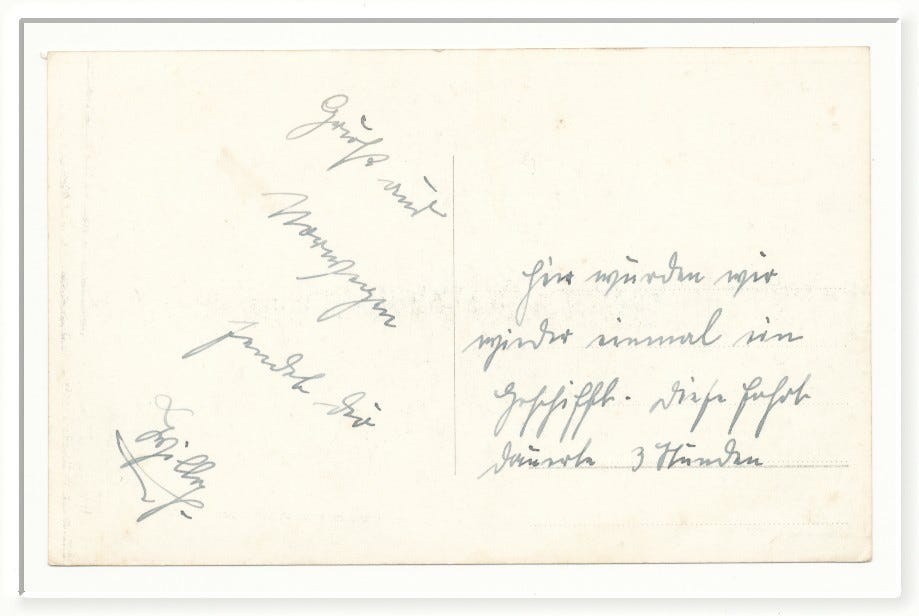 Gruß aus
Norwegen
sendet Dir
Willy.
Hier wurden wir
wieder einmal ein
geschifft. Diese Fahrt
dauerte 3 Stunden